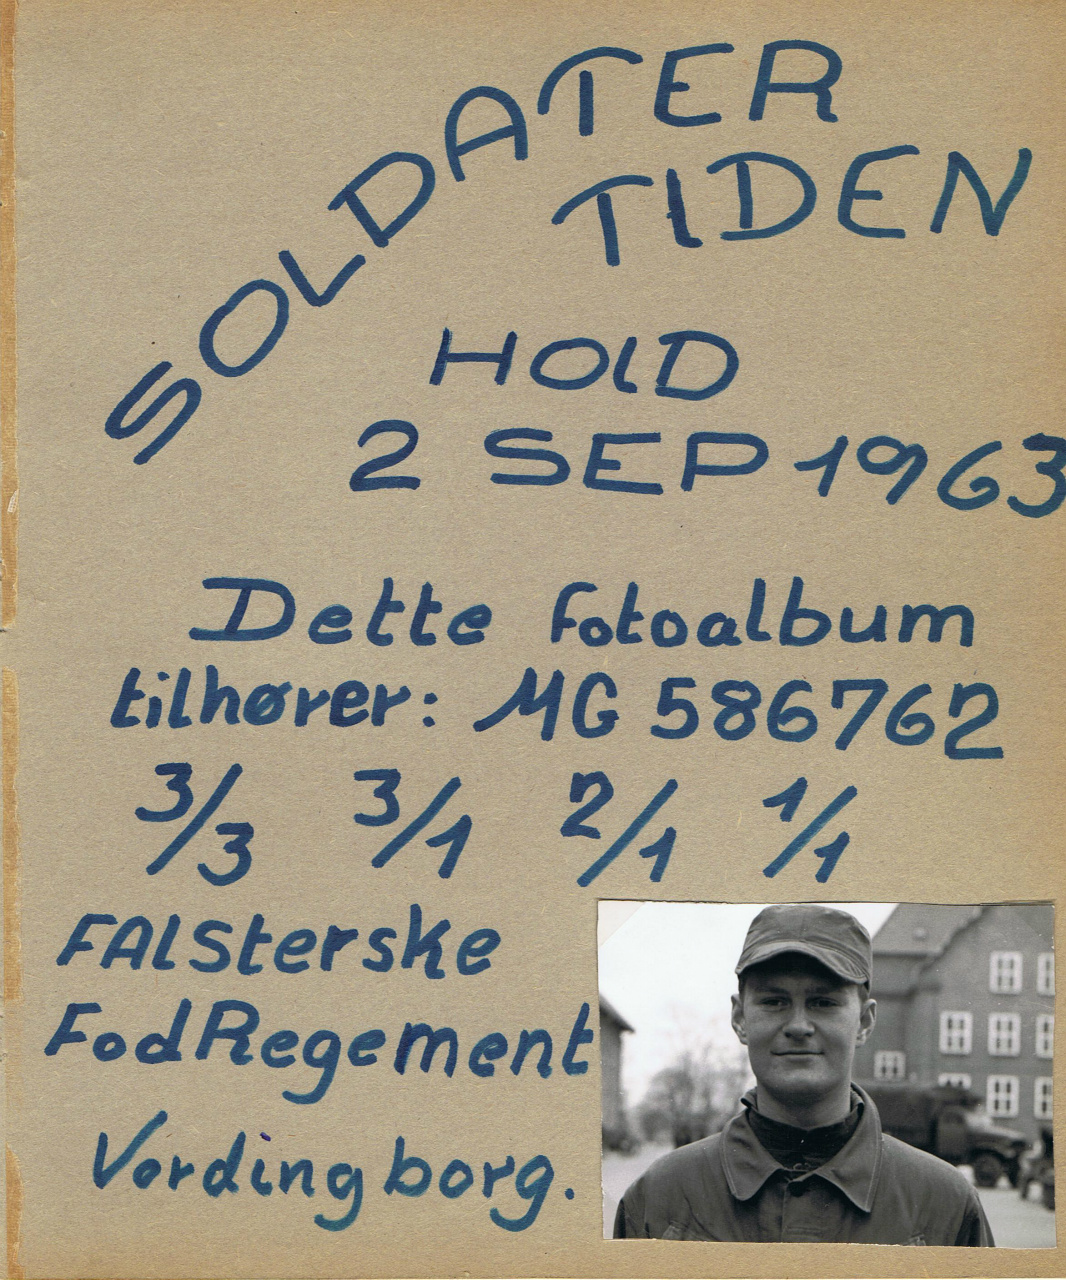 SOLDATER
TIDEN
HOlD
2 SEP 1963
Dette fotoalbum
tilhører: MG 586762
3/3 3/1 2/1 1/1
FAlSterske
FodRegement
Vordingborg.